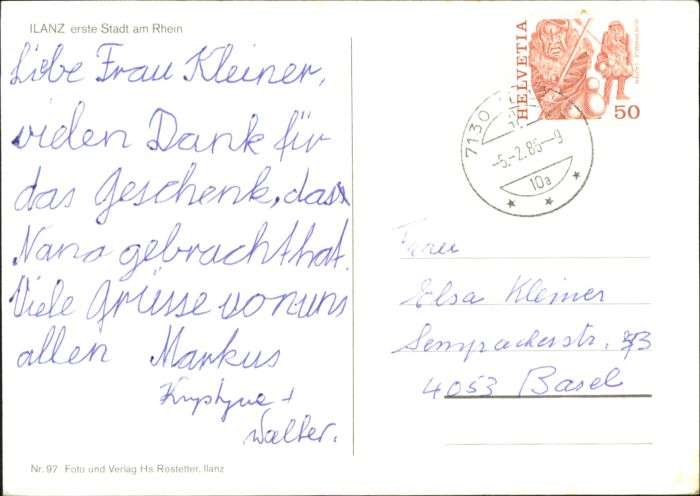 ILANZ erste Stadt am Rhein
Liebe Frau Kleiner,
vielen Dank für
das Geschenk, dass
Nana gebracht hat.
Viele Grüsse von uns
allen Markus
+
Walter.
Nr. 97 Foto und Verlag Hs. Rostetter, Ilanz
HELVETIA
50
7130
-5.-2.85-9
10a
Frau
Elsa Kleiner
Sempacherstr.
4053 Basel